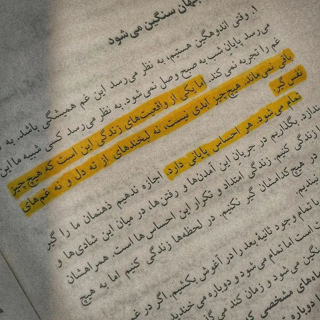 جهان سنگین می‌شود
۱. وقتی اندوهگین هستیم، به نظر می‌رسد این غم همیشگی باشد. به
می‌رسد پایان شب به صبح وصل نمی‌شود. به نظر می‌رسد کسی شبیه ما این
غم را تجربه نمی‌کند. اما یکی از واقعیت‌های زندگی این است که هیچ‌چیز
باقی نمی‌ماند. هیچ‌چیز ابدی نیست، نه لبخندهای از ته دل و نه غم‌های
نفس‌گیر.
تمام می‌شود. هر احساسی پایانی دارد. اجازه ندهیم ذهنمان ما را گیر
ندارد. بگذاریم در جریان این آمدن‌ها و رفتن‌ها، در میان این شادی‌ها و
زندگی کنیم. زندگی امتداد و تکرار این احساس‌ها است. همراهشان
در هیچ‌کدامشان گیر نکنیم. در لحظه‌ها زندگی کنیم اما به هیچ
نبندیم.
با تمام وجود ثانیهٔ بعد را در آغوش بکشیم. اگر در غم
است اما تمام می‌شود و دوباره می‌خندیم.
سنگین می‌شود و زمان کند می‌گذرد
مشخصی که